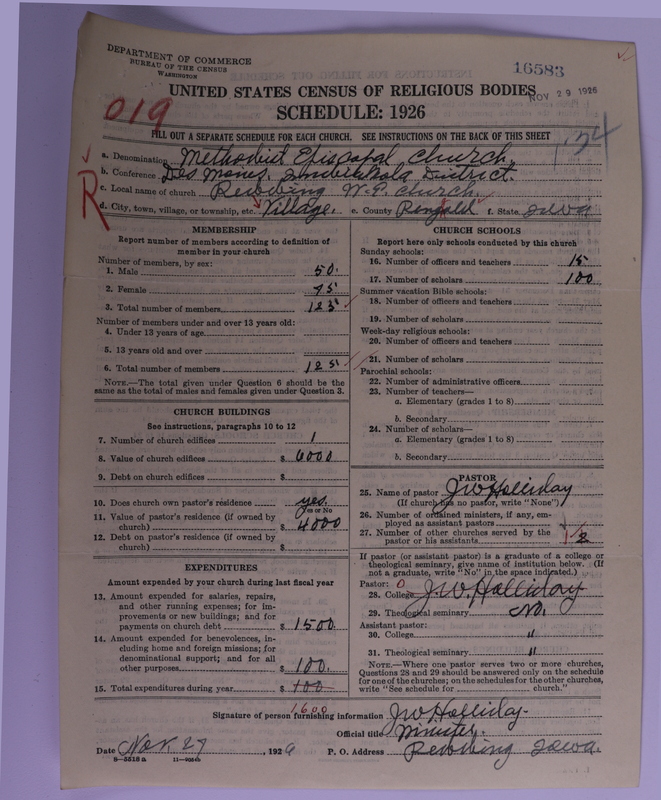 DEPARTMENT OF COMMERCE
BUREAU OF THE CENSUS
WASHINGTON
16583
UNITED STATES CENSUS OF RELIGIOUS BODIES
NOV 29 1926
SCHEDULE: 1926
019
FILL OUT A SEPARATE SCHEDULE FOR EACH CHURCH. SEE INSTRUCTIONS ON THE BACK OF THIS SHEET
34
R
a. Denomination Methodist Episcopal Church.
b. Conference Des Moines. District.
c. Local name of church Church.
d. City, town, village, or township, etc. Village. e. County Ringgold f. State Iowa
MEMBERSHIP
Report number of members according to definition of
member in your church
Number of members, by sex:
1. Male 50.
2. Female 75
3. Total number of members 125
Number of members under and over 13 years old:
4. Under 13 years of age
5. 13 years old and over
6. Total number of members 125
NOTE.—The total given under Question 6 should be the
same as the total of males and females given under Question 3.
CHURCH BUILDINGS
See instructions, paragraphs 10 to 12
7. Number of church edifices 1
8. Value of church edifices $ 6000
9. Debt on church edifices $
10. Does church own pastor's residence yes.
Yes or No
11. Value of pastor's residence (if owned by
church) $ 4000
12. Debt on pastor's residence (if owned by
church) $
EXPENDITURES
Amount expended by your church during last fiscal year
13. Amount expended for salaries, repairs,
and other running expenses; for im-
provements or new buildings; and for
payments on church debt $ 1500
14. Amount expended for benevolences, in-
cluding home and foreign missions; for
denominational support; and for all
other purposes $ 100.
15. Total expenditures during year $ 100
1,600
CHURCH SCHOOLS
Report here only schools conducted by this church
Sunday schools:
16. Number of officers and teachers 15
17. Number of scholars 100
Summer vacation Bible schools:
18. Number of officers and teachers
19. Number of scholars
Week-day religious schools:
20. Number of officers and teachers
21. Number of scholars
Parochial schools:
22. Number of administrative officers
23. Number of teachers—
a. Elementary (grades 1 to 8)
b. Secondary
24. Number of scholars—
a. Elementary (grades 1 to 8)
b. Secondary
PASTOR
25. Name of pastor J W Holliday
(If church has no pastor, write "None")
26. Number of ordained ministers, if any, em-
ployed as assistant pastors
27. Number of other churches served by the
pastor or his assistants 1 2
If pastor (or assistant pastor) is a graduate of a college or
theological seminary, give name of institution below. (If
not a graduate, write "No" in the space indicated.)
Pastor: 0
28. College J. W. Holliday
29. Theological seminary No.
Assistant pastor:
30. College "
31. Theological seminary "
NOTE.—Where one pastor serves two or more churches,
Questions 28 and 29 should be answered only on the schedule
for one of the churches; on the schedules for the other churches,
write "See schedule for church."
Signature of person furnishing information J W Holliday.
Official title Minister.
Date Nov. 27, 1926 P. O. Address Iowa.
8-5518 a